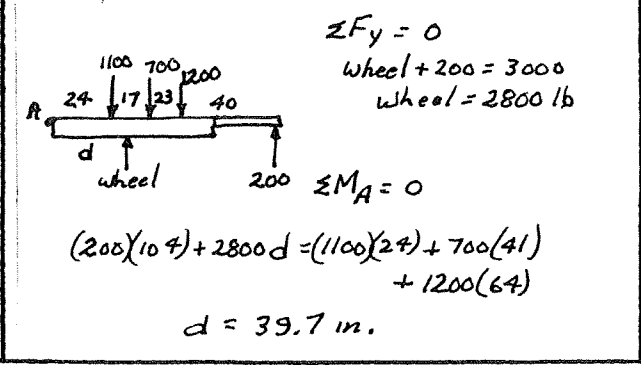 ΣFy = 0
wheel + 200 = 3000
wheel = 2800 lb
1100 700 1200
A 24 17 23 40
d
wheel 200
ΣM_A = 0
(200)(104) + 2800 d = (1100)(24) + 700(41)
+ 1200(64)
d = 39.7 in.